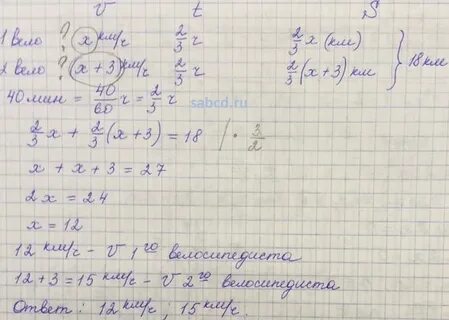 V t S
1 вело ? x км/ч 2/3 ч 2/3 x (км)
2 вело ? (x+3) км/ч 2/3 ч 2/3 (x+3) км } 18 км
40 мин = 40/60 ч = 2/3 ч
sabcd.ru
2/3 x + 2/3 (x+3) = 18 | · 3/2
x + x + 3 = 27
2x = 24
x = 12
12 км/ч - V 1го велосипедиста
12+3 = 15 км/ч - V 2го велосипедиста
Ответ: 12 км/ч ; 15 км/ч.